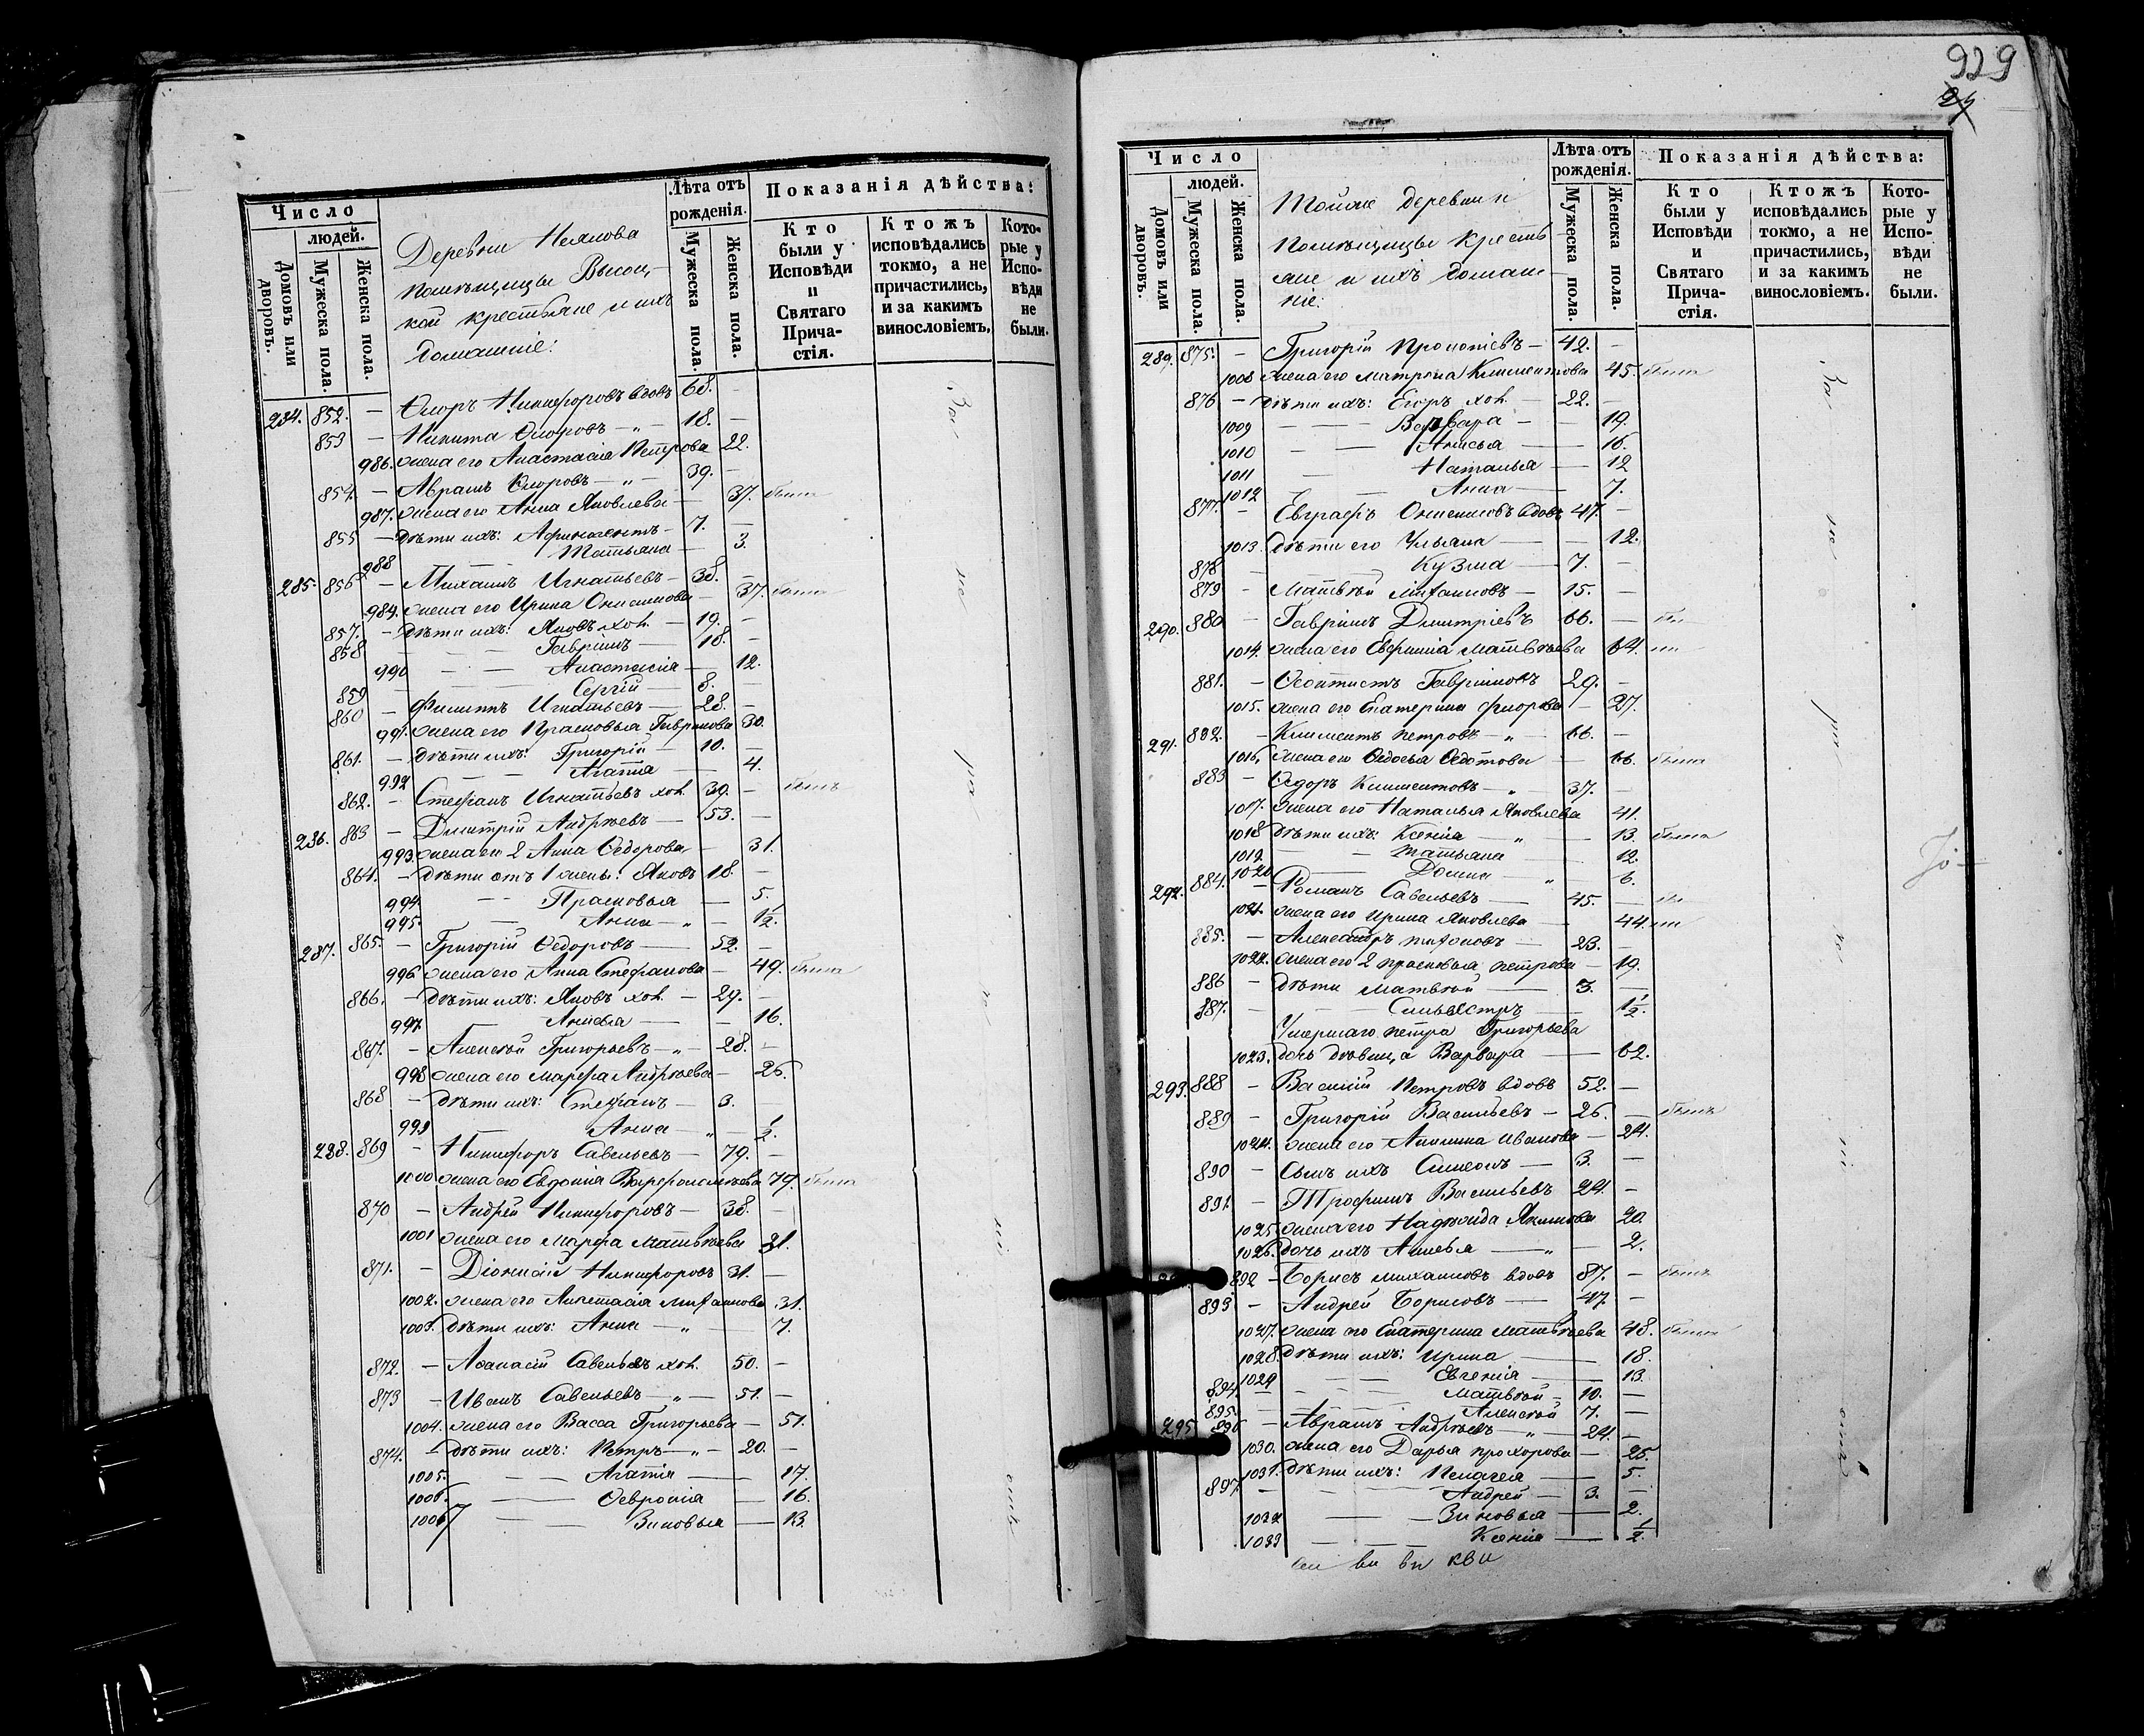 929
27
Число
людей.
Домовъ или дворовъ.
Мужеска пола.
Женска пола.
Деревни
помѣщицы Высоц-
кой крестьяне и ихъ
домашніе:
Лѣта отъ рожденія.
Мужеска пола.
Женска пола.
Показанія дѣйства:
Кто были у Исповѣди и Святаго Причастія.
Ктожъ исповѣдались токмо, а не причастились, и за какимъ винословіемъ.
Которые у Исповѣди не были.
284. 852. — Никифоровъ вдовъ 68. —
853 — Никита 18. —
986. жена его Анастасія Петрова 22.
854. — Аврамъ 39. —
987. жена его Анна Яковлева — 37. была
855 — дѣти ихъ: 7. —
988 Татьяна — 3.
285. 856 — Михаилъ Игнатьевъ — 38. —
989. жена его Ирина Онисимова — 37. была
857. — дѣти ихъ: Яковъ хол. — 19. —
858 — Гавріилъ — 18. —
990 — — Анастасія — 12.
859 — Сергій — 8. —
860 — Филиппъ Игнатьевъ — 28. —
991. жена его Прасковья Гаврилова 30.
861. — дѣти ихъ: Григорій — 10. —
992 — — Агапія — 4.
862. — Стефанъ Игнатьевъ хол. 39. — былъ
286. 863 — Дмитрій Андрѣевъ — 53. —
993. жена его 2 Анна Ѳедорова — 31.
864. — дѣти отъ 1 жены: Яковъ 18. —
994 — — Прасковья — 5.
995. — Анна — „ — ½.
287. 865. — Григорій Ѳедоровъ — 52. —
996 жена его Анна Стефанова — 49. была
866. — дѣти ихъ: Яковъ хол. — 29. —
997 — Анисья — — 16.
867. — Алексѣй Григорьевъ — „ — 28. —
998 жена его Марфа Андрѣева — 26.
868 — дѣти ихъ: Стефанъ — 3. —
999 — Анна — „ — ½.
288. 869 — Никифоръ Савельевъ — 79. —
1000 жена его Евдокія Варфоломѣева 79. была
870 — Андрей Никифоровъ — 38. —
1001 жена его Марфа Матвѣева 31.
871. — Діонисій Никифоровъ 31. —
1002. жена его Анастасія Михаилова 31.
1003. дѣти ихъ: Анна — „ — 7.
872. — Аѳанасій Савельевъ хол. 50. —
873 — Иванъ Савельевъ — „ — 51. —
1004. жена его Васса Григорьева — 51.
874. — дѣти ихъ: Петръ — „ — 20. —
1005. — — Агапія — 17.
1006. — — Ѳевронія — 16.
1007 — — Зиновья — 13.
Число
людей.
Домовъ или дворовъ.
Мужеска пола.
Женска пола.
Тойже деревни
помѣщицы кресть
яне и ихъ домаш
ніе:
Лѣта отъ рожденія.
Мужеска пола.
Женска пола.
Показанія дѣйства:
Кто были у Исповѣди и Святаго Причастія.
Ктожъ исповѣдались токмо, а не причастились, и за какимъ винословіемъ.
Которые у Исповѣди не были.
289. 875. — Григорій Прокопіевъ — 42. —
1008 жена его Матрона Климентова 45. была
876 — дѣти ихъ: Егоръ хол. — 22. —
1009 — — — Варвара — — 19.
1010 — — Анисья — 16.
1011 — Наталья — 12
1012 — — Анна — 7.
877. — Евграфъ Онисимовъ вдовъ 47. —
1013. дѣти его Ульяна — — 12.
878 — Кузма — 7. —
879 — Матвѣй Михаиловъ — 15. —
290. 880 — Гавріилъ Дмитріевъ 66. —
1014. жена его Евфимія Матвѣева 64.
881. — Ѳеоктистъ Гавриловъ 29. —
1015. жена его Екатерина Флорова — 27.
291. 882. — Климентъ Петровъ — „ — 66. —
1016. жена его Ѳедосья Ѳедотова — 66. была
883 — Ѳедоръ Климентовъ — „ 37. —
1017. жена его Наталья Яковлева 41.
1018 дѣти ихъ: Ксенія — „ — 13. была
1019. — — Татьяна — 12.
1020 — Домна — „ — 6.
292. 884. — Романъ Савельевъ — 45. —
1021. жена его Ирина Яковлева — 44.
885. — Александръ — 23. —
1022. жена его 2 Прасковья Петрова — 19.
886 — дѣти Матвѣй — 3. —
887. — — Сильвестръ — 1½.
Умершаго Петра Григорьева
1023. дочь дѣвица Варвара — 62.
293. 888 — Василій Петровъ вдовъ 52. —
889 — Григорій Васильевъ — 26. — былъ
1024. жена его Акилина Иванова — 24.
890 — сынъ ихъ Симеонъ — 3. —
891. — Трофимъ Васильевъ 24. —
1025. жена его Надежда Якимова 20.
1026. дочь ихъ Анисья — „ — 2.
892 — Борисъ Михаиловъ вдовъ 87. — былъ
893. — Андрей Борисовъ — 47 —
1027. жена его Екатерина Матвѣева 48. была
1028. дѣти ихъ: Ирина — 18.
1029 — — Евгенія — 13.
894. — — Матвѣй — 10. —
895. — — Алексѣй 7. —
295 896 — Аврамъ Андрѣевъ — „ — 24. —
1030. жена его Дарья Прохорова — 25.
1031. дѣти ихъ: Пелагея — 5.
897. — — Андрей — 3. —
1032 — — Зиновья — 2.
1033 — — Ксенія — ½.